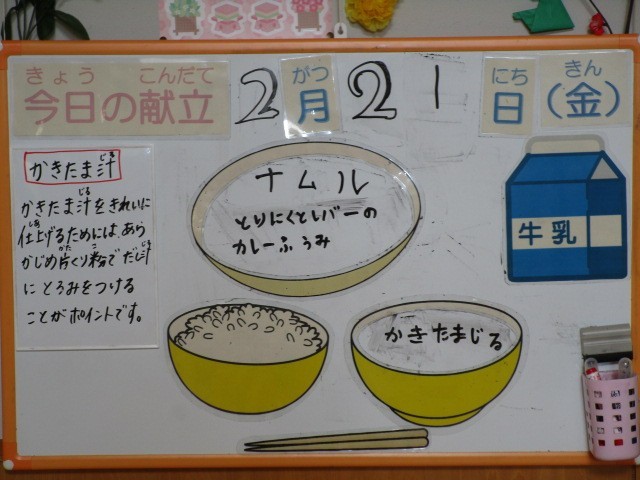 きょう こんだて
今日の献立
2月21日(金)
がつ にち きん
かきたま汁
じる
かきたま汁をきれいに
じる
仕上げるためには、あら
しあ
かじめ片くり粉でだし汁
かた こ じる
にとろみをつける
ことがポイントです。
ナムル
とりにくとレバーの
カレーふうみ
かきたまじる
牛乳